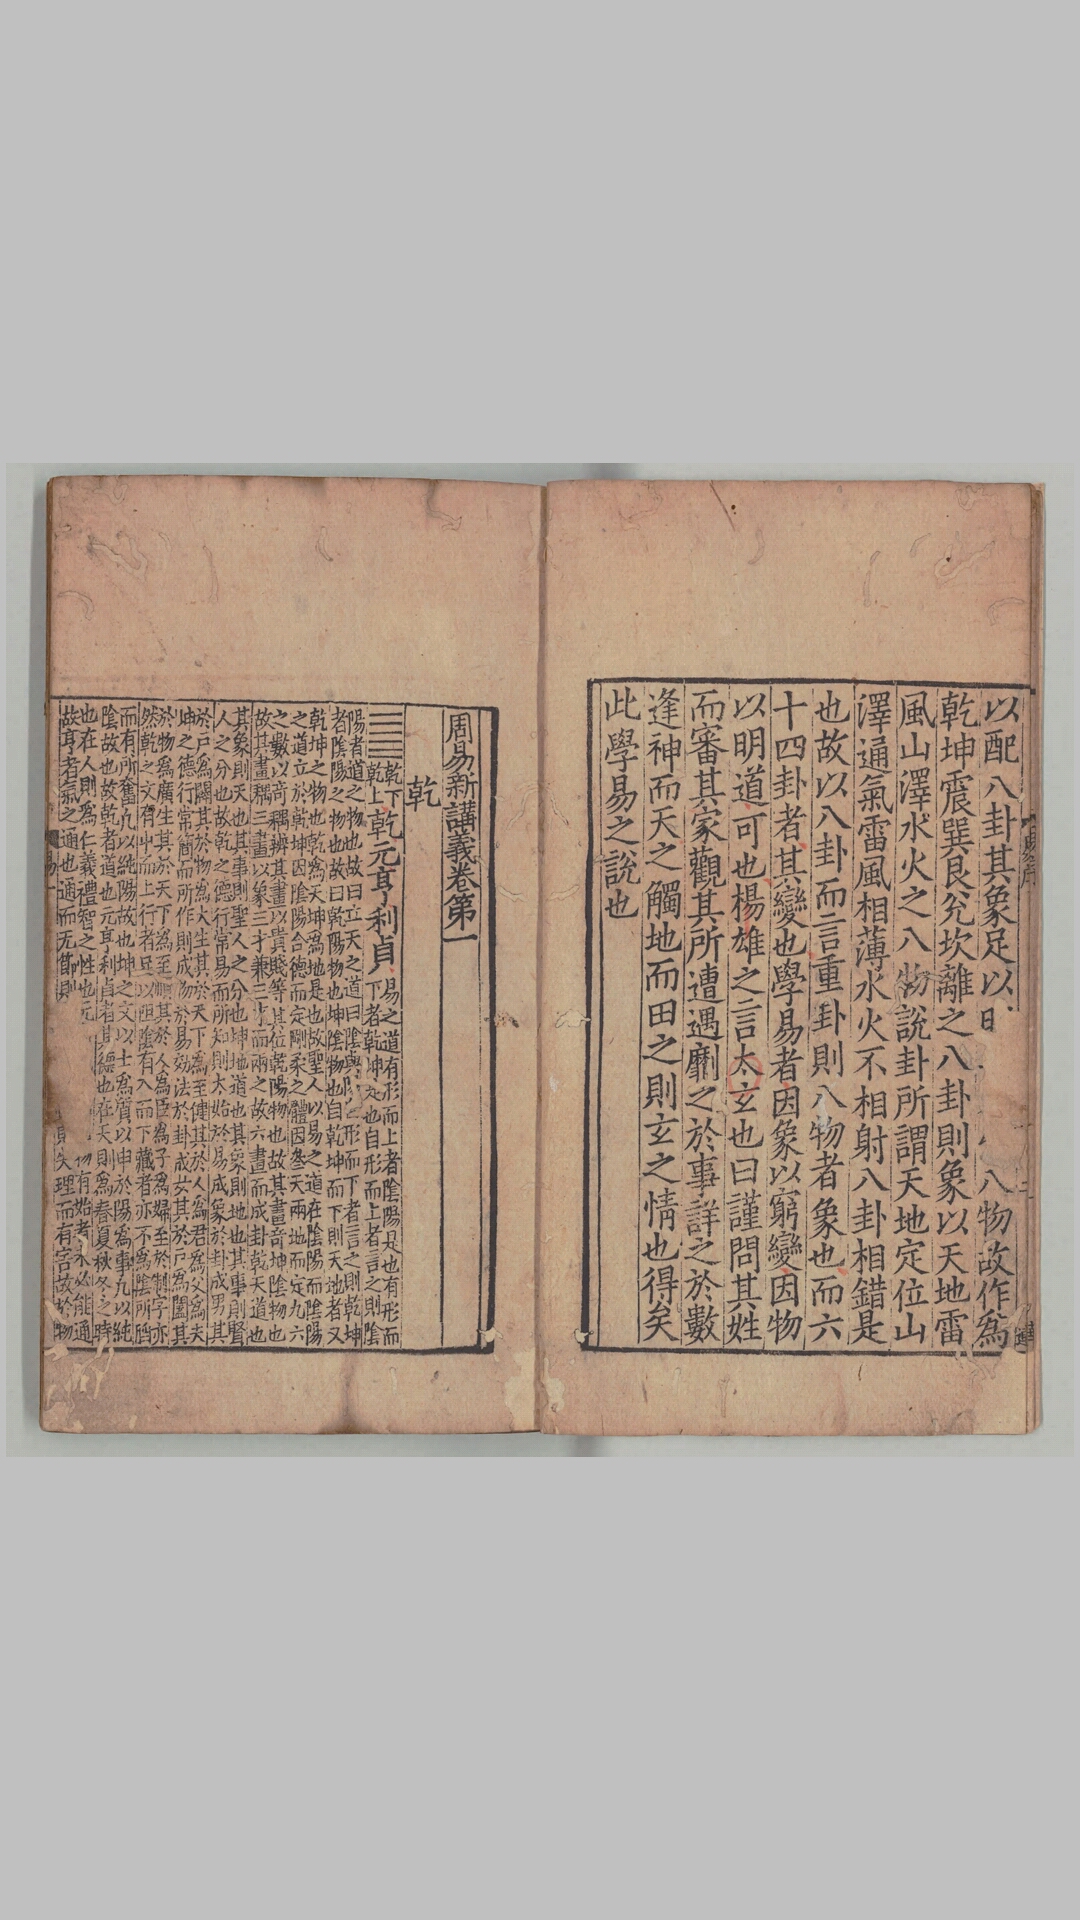 以配八卦其象足以明八物故作為
乾坤震巽艮兊坎離之八卦則象以天地雷
風山澤水火之八物說卦所謂天地定位山
澤通氣雷風相薄水火不相射八卦相錯是
也故以八卦而言重卦則八物者象也而六
十四卦者其變也學易者因象以窮變因物
以明道可也楊雄之言太玄也曰謹問其姓
而審其家觀其所遭遇劘之於事詳之於數
逢神而天之觸地而田之則玄之情也得矣
此學易之說也
周易新講義卷第一
乾
䷀乾下乾上乾元亨利貞易之道有形而上者陰陽是也有形而
下者乾坤是也自形而上者言之則陰
陽者道之物也故曰立天之道曰陰與陽自形而下者言之則乾坤
者陰陽之物也故曰乾陽物也坤陰物也自乾坤而下則天地者又
乾坤之物也乾為天坤為地是也故聖人以易之道在陰陽而陰陽
之道立於乾坤因陰陽合德而定剛柔之體因叁天兩地而定九六
之數以奇耦辨其畫以貴賤等其位乾陽物也故其畫奇坤陰物也
故其畫耦三畫以象三才兼三才而兩之故六畫而成卦乾天道也
其象則天也其事則聖人之分也坤地道也其象則地也其事則賢
人之分也故乾之德行常易而所知則太始於易成象於卦成男其
於戶為闢其於物為大生其於天下為至健其於人為君為父為夫
坤之德行常簡而所作則成物於易効法於卦成女其於戶為闔其
於物為廣生其於天下為至順其於人為臣為子為婦至於制字亦
然乾之文有屮而上行者以陰有入而下藏者亦不為陰所
而有所奮九以純陽故也坤之文以土為質以申於陽為事九以純
陰故也故乾者道也元亨利貞者其德也在天則為春夏秋冬之時
也在人則為仁義禮智之性也元物有始者未必能通
故亨者氣之通也通而无節則失理而有害故於物